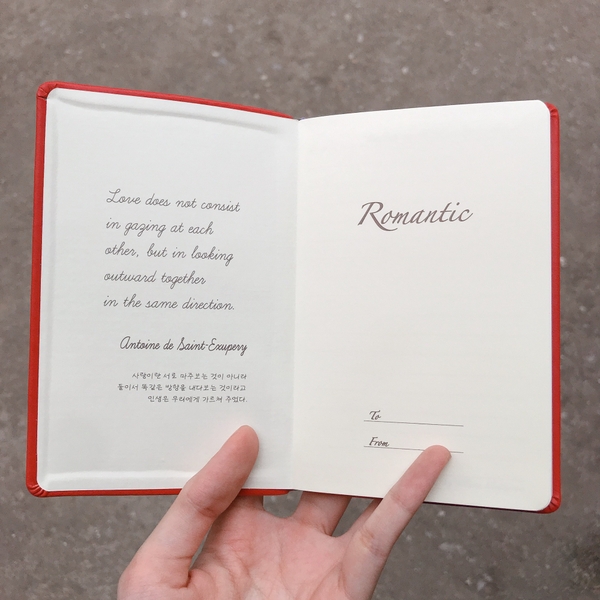 Love does not consist
in gazing at each
other, but in looking
outward together
in the same direction.
Antoine de Saint-Exupery
사랑이란 서로 마주보는 것이 아니라
둘이서 똑같은 방향을 내다보는 것이라고
인생은 우리에게 가르쳐 주었다.
Romantic
To
From